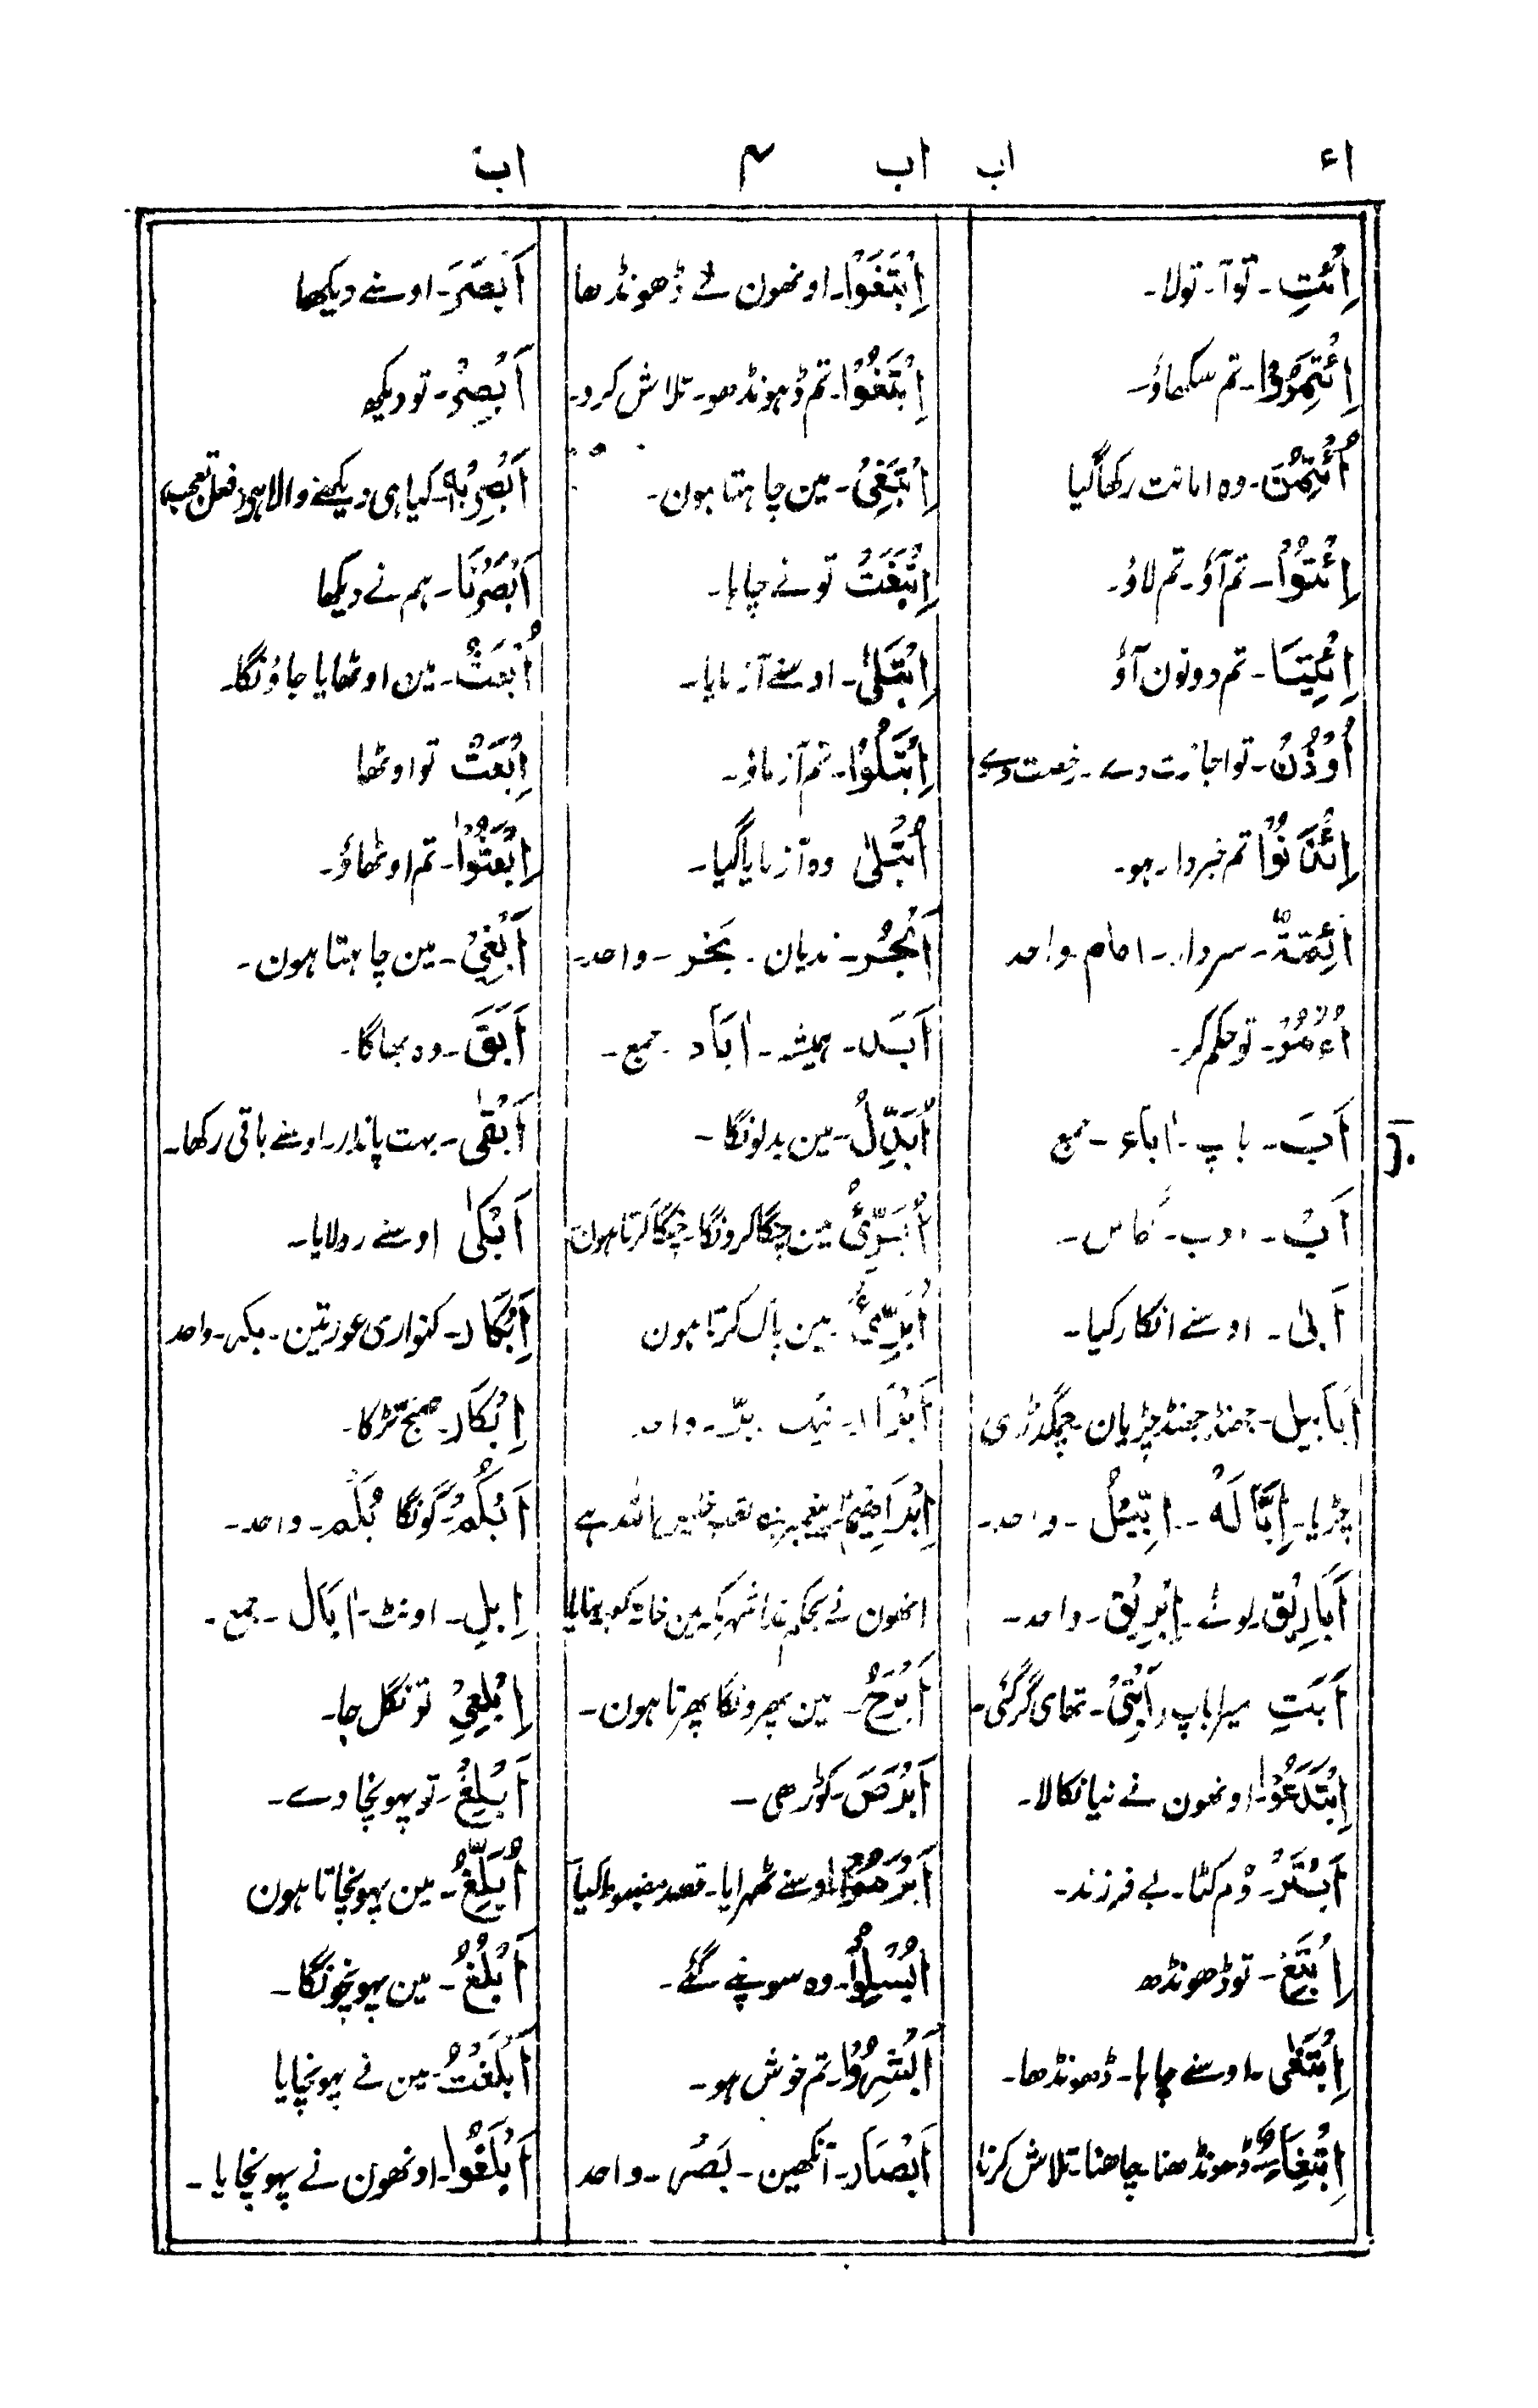 اء اب اب ۴ اب
اِئْتِ۔ تو آ۔ تولا۔
اِئْتَمِرُوْا۔ تم سکھاؤ۔
اُئْتُمِنَ۔ وہ امانت رکھا گیا
اِئْتُوْا۔ تم آؤ۔ تم لاؤ۔
اِئْتِيَا۔ تم دونون آؤ
اُوْذُنْ۔ تو اجازت دے۔ رخصت دے
اِئْذَنُوْا تم خبردار ہو۔
اَئِمَّةٌ۔ سردار۔ امام۔ واحد
اُءْمُرْ۔ تو حکم کر۔
اَبَ۔ باپ۔ اٰباء۔ جمع
اَبّ۔ دوب۔ گھاس۔
اَبٰى۔ اوسنے انکار کیا۔
اَبَابیل۔ جھنڈ جھنڈ چڑیان۔ چمگدڑی
چڑیا۔ اِبَّالَةْ۔ اِبِّيْلٌ۔ واحد۔
اَبَارِيْق۔ لوٹے۔ اِبْرِيْق۔ واحد۔
اَبَتِ میرا باپ رَاَبْتَىْ۔ تمھای گرگئی۔
اِبْتَدَعُوْا۔ اونھون نے نیا نکالا۔
اَبْتَرُ۔ دُم کٹا۔ بے فرزند۔
اِبْتَغِ۔ تو ڈھونڈھ
اِبْتَغٰى۔ اوسنے چاہا۔ ڈھونڈھا۔
اِبْتِغَاءٌ۔ ڈھونڈھنا۔ چاھنا۔ تلاش کرنا
اِبْتَغَوْا۔ اونھون نے ڈھونڈھا
اِبْتَغُوْا۔ تم ڈہونڈھو۔ تلاش کرو۔
اِبْتَغِىْ۔ مین چاہتا ہون۔
اِبْتَغَيْتَ تو نے چاہا۔
اِبْتَلٰى۔ اوسنے آزمایا۔
اِبْتَلُوْا۔ تم آزماؤ۔
اُبْتُلِىَ وہ آزمایا گیا۔
اَبْحُر۔ ندیان۔ بَحْر۔ واحد۔
اَبَد۔ ہمیشہ۔ اٰبَاد۔ جمع۔
اُبَدِّلُ۔ مین بدلونگا۔
اُبَرِّئُ مین چنگا کرونگا۔ چنگا کرتا ہون
اُبَرِّئُ۔ مین پاک کرتا ہون
اَبْرَار۔ نیک۔ بَرّ۔ واحد۔
اِبْرَاهِيْم پیغمبر ہین لقب خلیل اللہ ہے
انھون نے بحکم خدا شہر مکہ مین خانہ کعبہ بنایا
اَبْرَحُ۔ مین پھرونگا پھرتا ہون۔
اَبْرَصَ۔ کوڑھی۔
اَبْرَمُوْا اوسنے ٹھرایا۔ قصد مضبوط کیا
اُبْسِلُوْا۔ وہ سونپے گئے۔
اَبْشِرُوْا۔ تم خوش ہو۔
اَبْصَار۔ آنکھین۔ بَصَر۔ واحد
اَبْصَرَ۔ اوسنے دیکھا
اَبْصِرْ۔ تو دیکھ
اَبْصِرْبِهٖ۔ کیا ہی دیکھنے والا ہی (فعل تعجب)
اَبْصَرْنَا۔ ہم نے دیکھا
اُبْعَثُ۔ مین اوٹھایا جاؤنگا۔
اِبْعَثْ تو اوٹھا
اِبْعَثُوْا۔ تم اوٹھاؤ۔
اَبْغِىْ۔ مین چاہتا ہون۔
اَبَقَ۔ وہ بھاگا۔
اَبْقٰى۔ بہت پائدار۔ اوسنے باقی رکھا۔
اَبْكٰى اوسنے رولایا۔
اَبْكَار۔ کنواری عورتین۔ بکر۔ واحد
اِبْكَار۔ صبح تڑکا۔
اَبْكَمُ۔ گونگا بُكْم۔ واحد۔
اِبِل۔ اونٹ۔ اٰبَال۔ جمع۔
اِبْلَعِىْ تو نگل جا۔
اَبْلِغْ۔ تو پہونچا دے۔
اُبَلِّغُ۔ مین پہونچاتا ہون
اَبْلُغُ۔ مین پہونچونگا۔
اَبْلَغْتُ۔ مین نے پہونچایا
اَبْلَغُوْا۔ اونھون نے پہونچایا۔